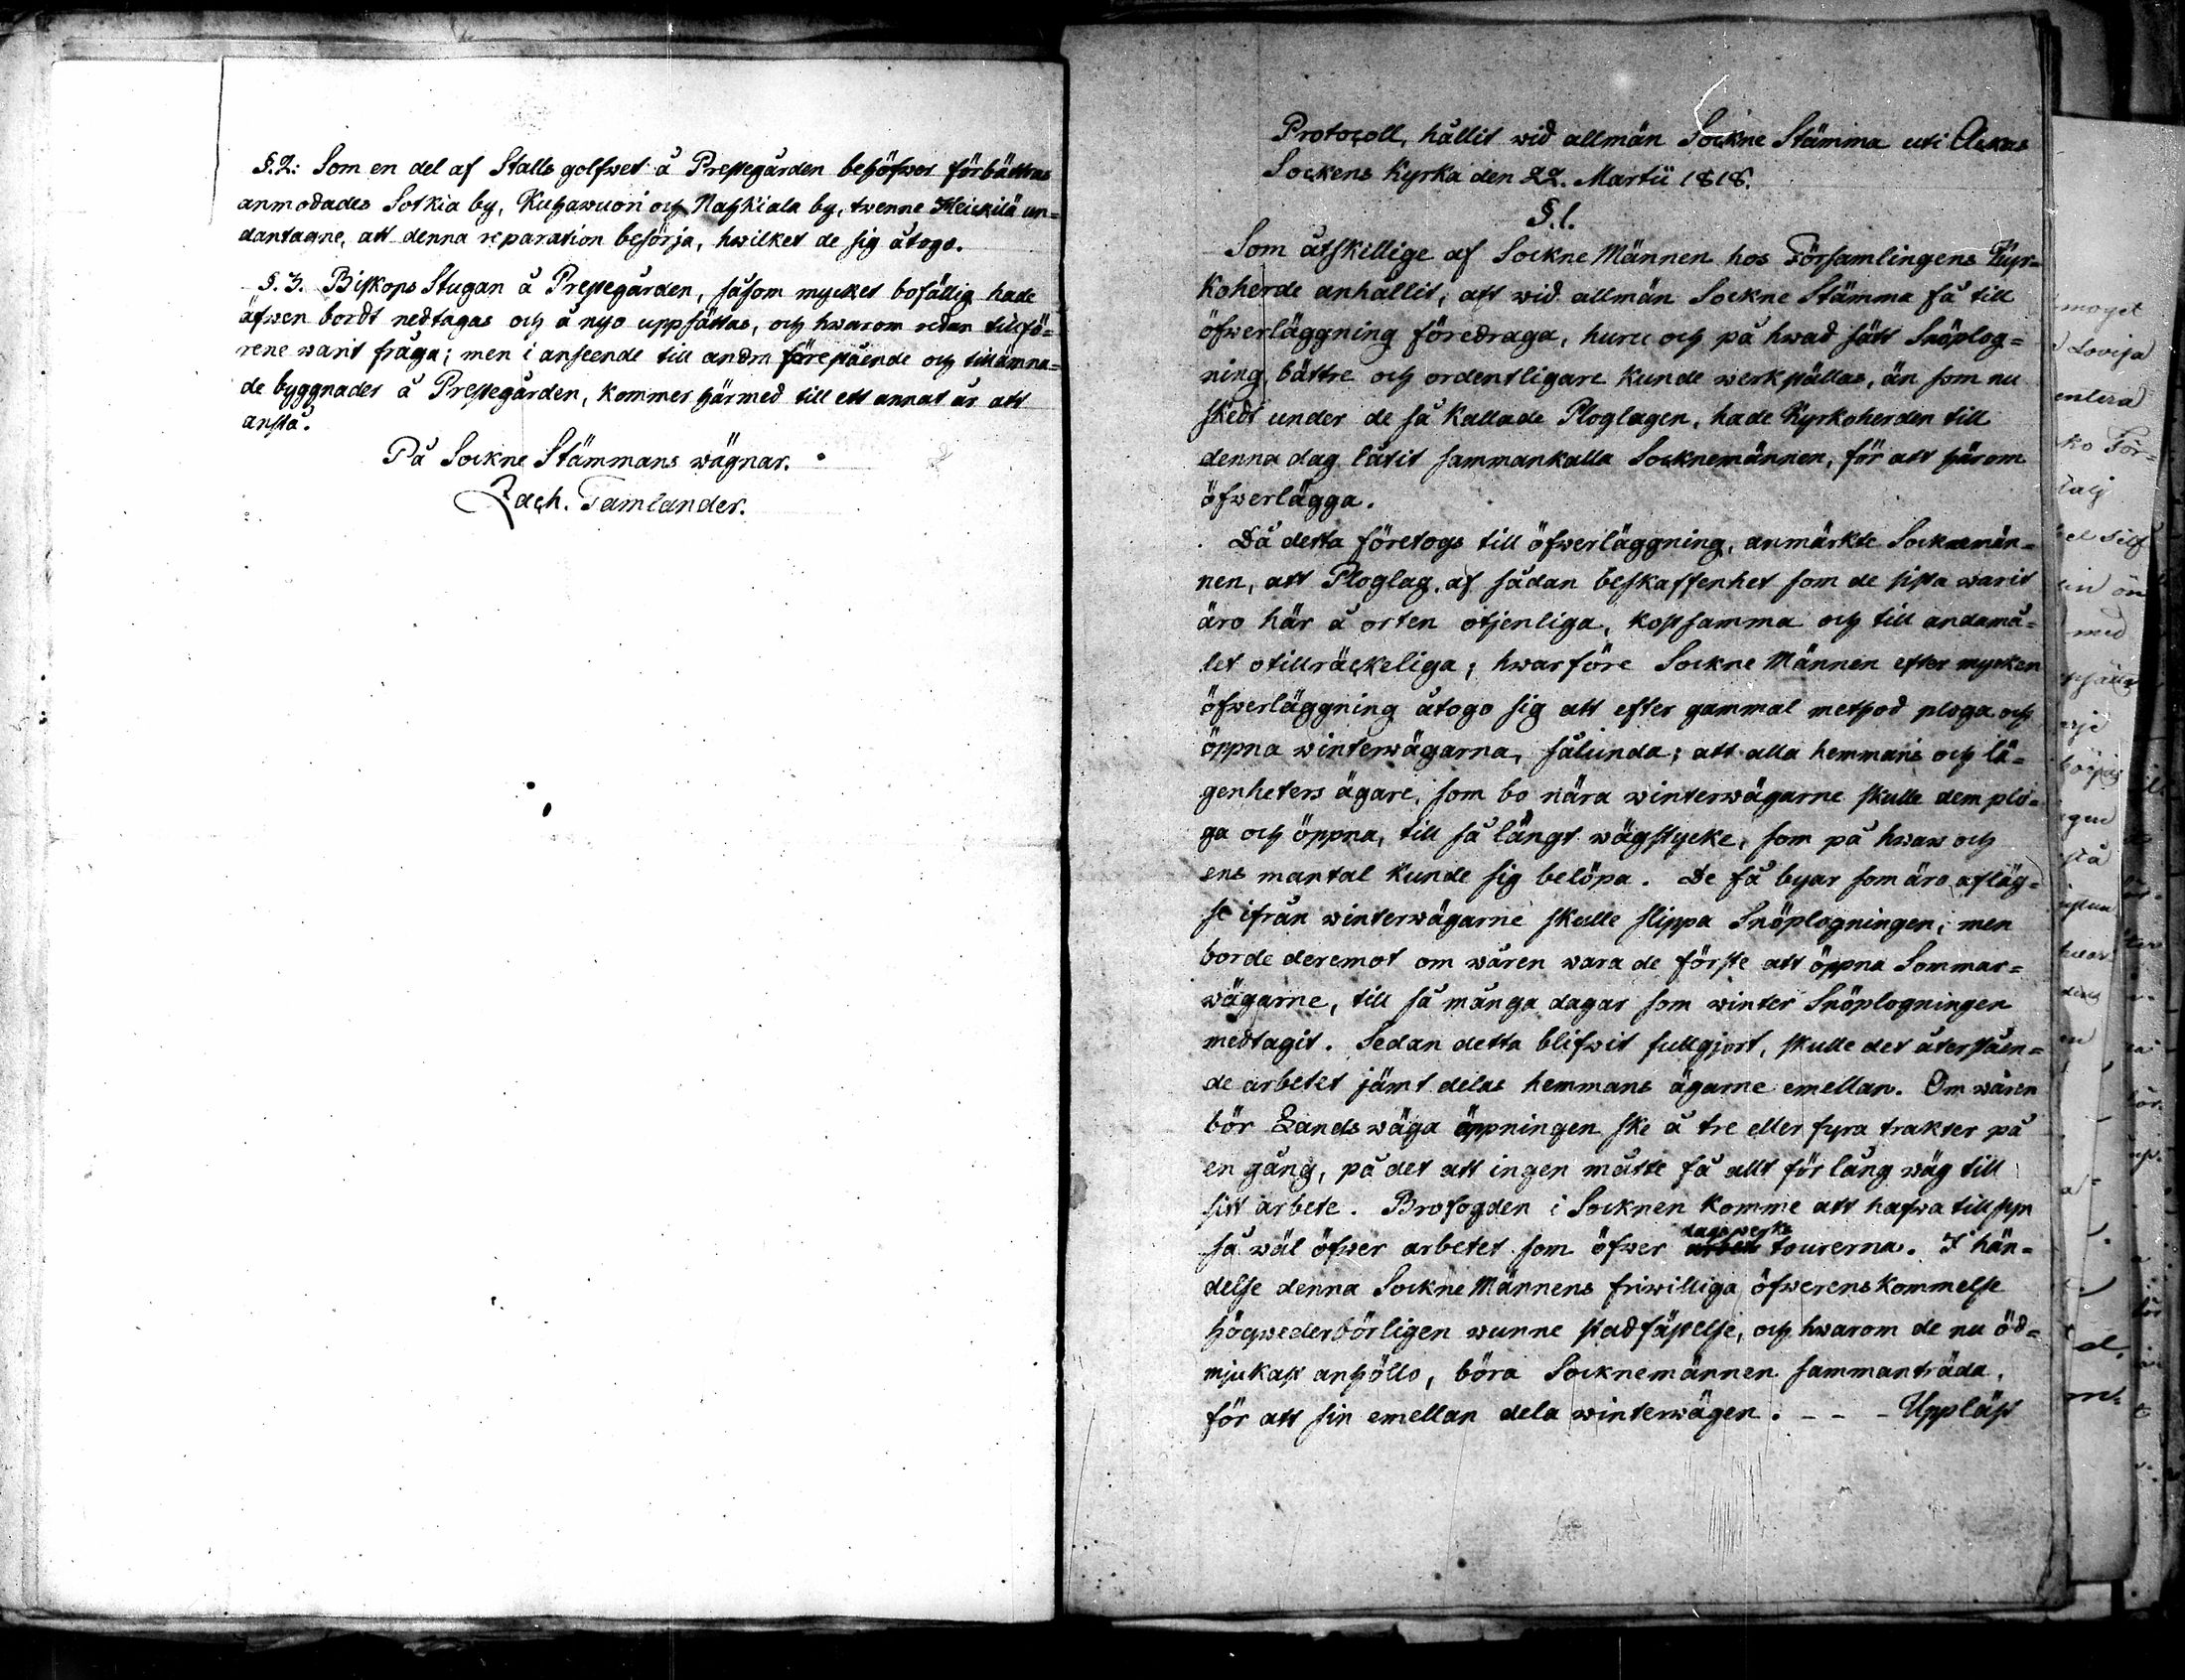 §.2: Som en del af Stalls golfwet å Prestegården behöfwer förbättras
anmodades Sotkia by, Kuhawuori och Nahkiala by, twenne Heickilä un=
dantagne, att denna reparation besörja, hwilket de sig åtogo.
§.3. Biskops Stugan å Prestegården, såsom mycket bofällig hade
äfwen bordt nedtagas och å nyo uppsättas, och hwarom redan tillfö=
rene warit fråga; men i anseende till andra förestående och tillämna=
de byggnader å Prestegården, kommer härmed till ett annat år att
anstå.
På Sockne Stämmans wägnar.
Zach. Tamlander.
Protocoll, hållit wid allmän Sockne Stämma uti Ackas
Sockens Kyrka den 22. Martii 1818.
§.1.
Som åtskillige af Sockne Männen hos Församlingens Kyr=
koherde anhållit, att wid allmän Sockne Stämma få till
öfwerläggning föredraga, huru och på hwad sätt Snöplog=
ning bättre och ordentligare kunde werkställas, än som nu
skedt under de så kallade Ploglagen, hade Kyrkoherden till
denna dag låtit sammankalla Socknemännen, för att härom
öfwerlägga.
Då detta företogs till öfwerläggning, anmärkte Socknemän=
nen, att Ploglag, af sådan beskaffenhet som de sista warit
äro här å orten otjenliga, kostsamma och till andamå=
let otillräckeliga; hwarföre Sockne Männen efter mycken
öfwerläggning åtogo sig att efter gammal method ploga och
öppna winterwägarna, sålunda; att alla hemmans och lä=
genheters ägare, som bo nära winterwägarne skulle dem plo=
ga och öppna, till så långt wägstycke, som på hwars och
ens mantal kunde sig belöpa. De få byar som äro afläg=
se ifrån winterwägarne skulle slippa Snöplogningen; men
borde deremot om wåren wara de förste att öppna Sommar=
wägarne, till så många dagar som winter Snöplogningen
medtagit. Sedan detta blifwit fullgjort, skulle det återståen=
de arbetet jämt delas hemmans ägarne emellan. Om wåren
bör Landswäga öppningen ske å tre eller fyra trakter på
en gång, på det att ingen måtte få allt för lång wäg till
sitt arbete. Brofogden i Socknen komme att hafwa tillsyn
så wäl öfwer arbetet som öfwer dagswerks tourerna. I hän=
delse denna Sockne Männens friwilliga öfwerenskommelse
högwederbörligen wunne stadfästelse, och hwarom de nu öd=
mjukast anhöllo, böra Socknemännen sammanträda,
för att sin emellan dela winterwägen. - - - Uppläst